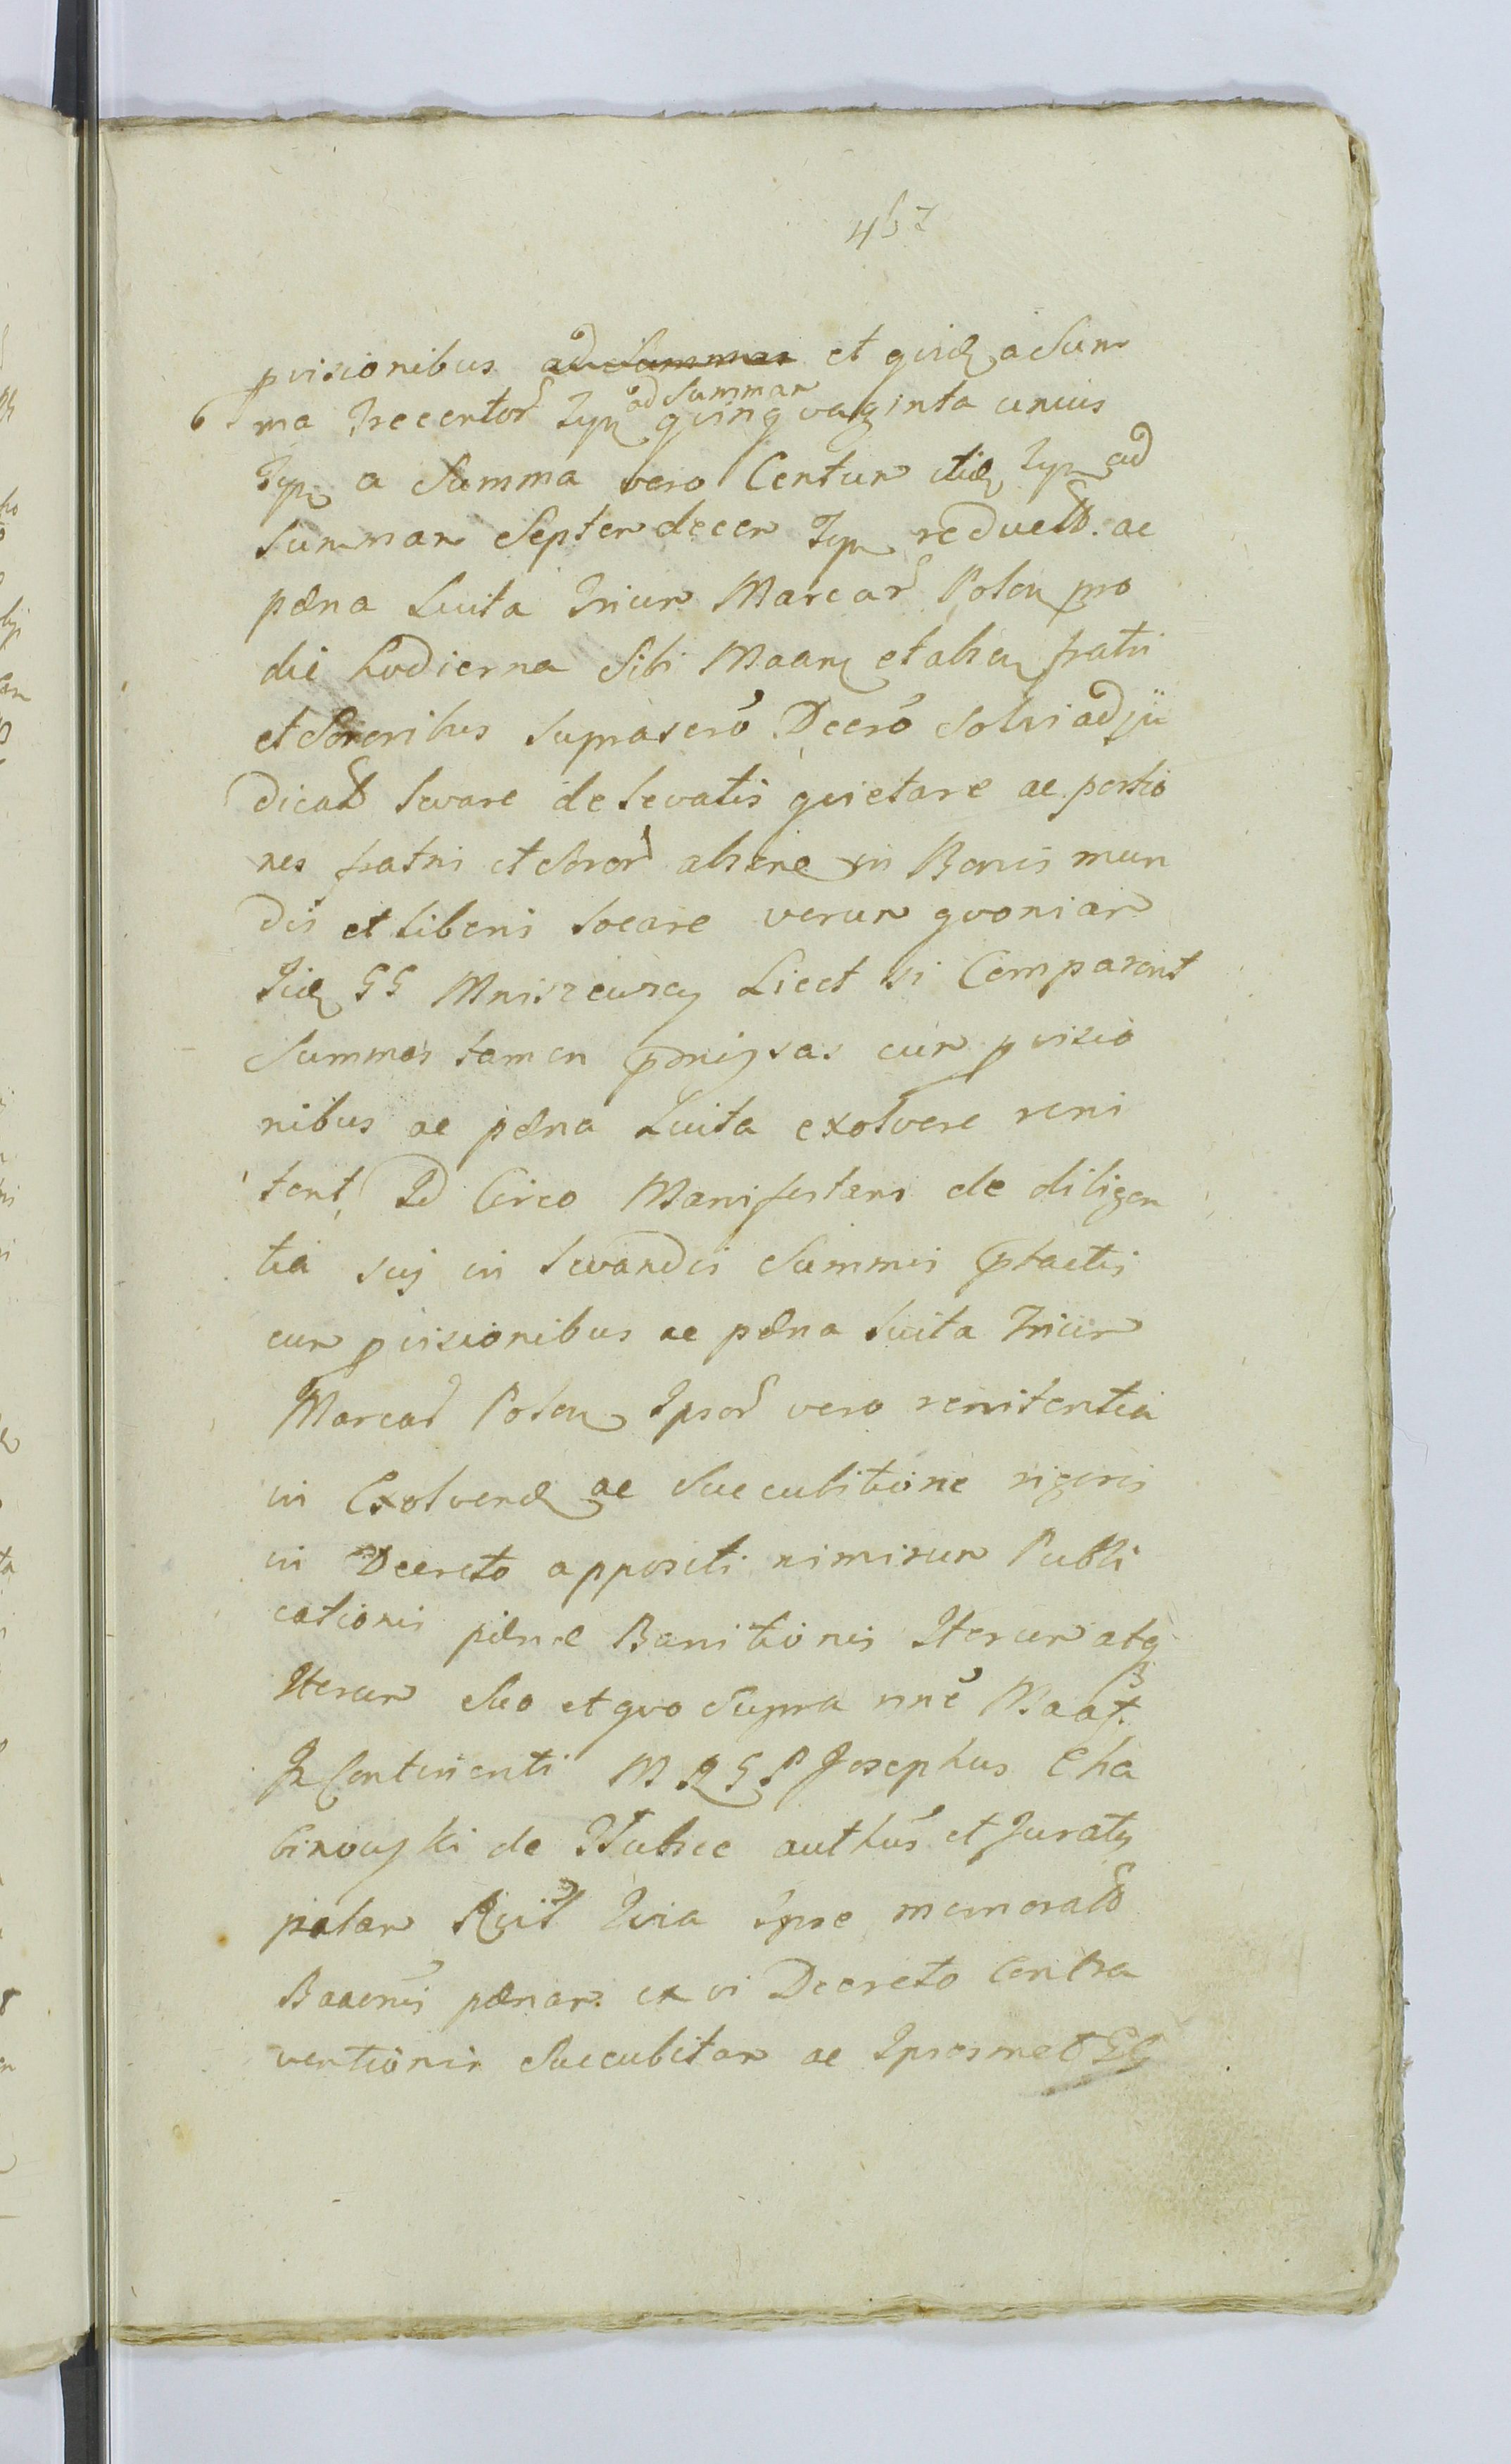 457
pvisionibus ad Summas et quid a Sum
ad Summam
ma Trecentor Typ quinquaginta unius
Typ a Summa vero Centum Typ ad
Summam Septemdecem Typ reduct. ac
pæna Luita Trium Marcar Polon pro
die hodierna Sibi Maan et alien fratri
et Sororibus suprascro Decro Solvi adju
dicat levare de levatis quietare ac portio
nes fratri et Soror in Bonis mun
dis et liberis locare verum quoniam
Iid GG Mniszewscy Licet hi Comparent
Summas tamen pmissas cum pvisio
nibus ac pæna Luita exolvere reni
tent, Id Circo Manifestans de diligen
tia sui in levandis Summis ptactis
cum pvisionibus ac pæna luita Trium
Marcar Polon Ipsor vero renitentia
in Exolvend ac Succubitione rigoris
in Decreto appositi nimirum Publi
cationis pænæ Banitionis Iterum atq
Iterum Suo et quo Supra nne
In Continenti M R G P Josephus Cha
binowski de authus et Juratus
palam Ipse memorat
pænam ex vi Decreto Contra
ventionis Succubitam ac Ipsosmet GG